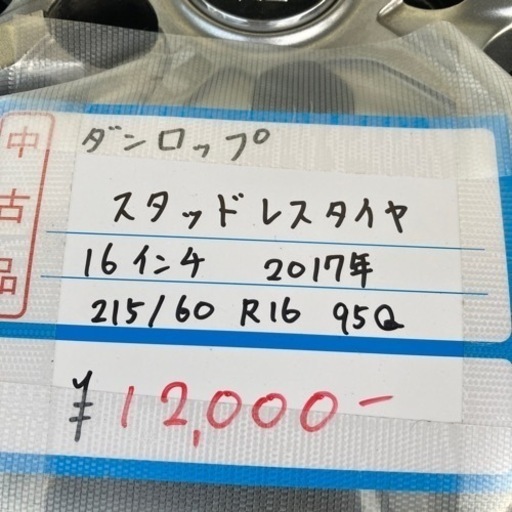 中古品
ダンロップ
スタッドレスタイヤ
16インチ 2017年
215/60 R16 95Q
¥12,000-